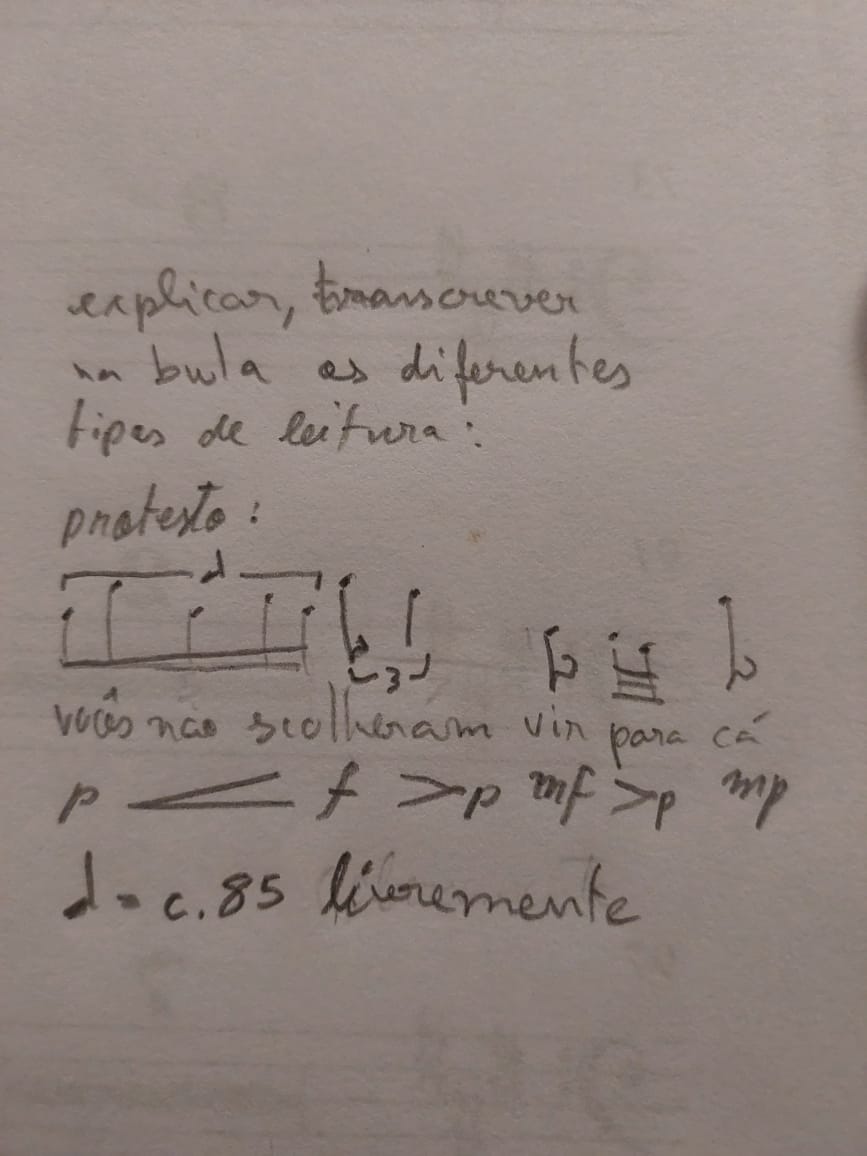 explicar, transcrever
na bula os diferentes
tipos de leitura:
protesto:
3
vocês não scolheram vin para cá
p f > p mf > p mp
♩ = c. 85 livremente